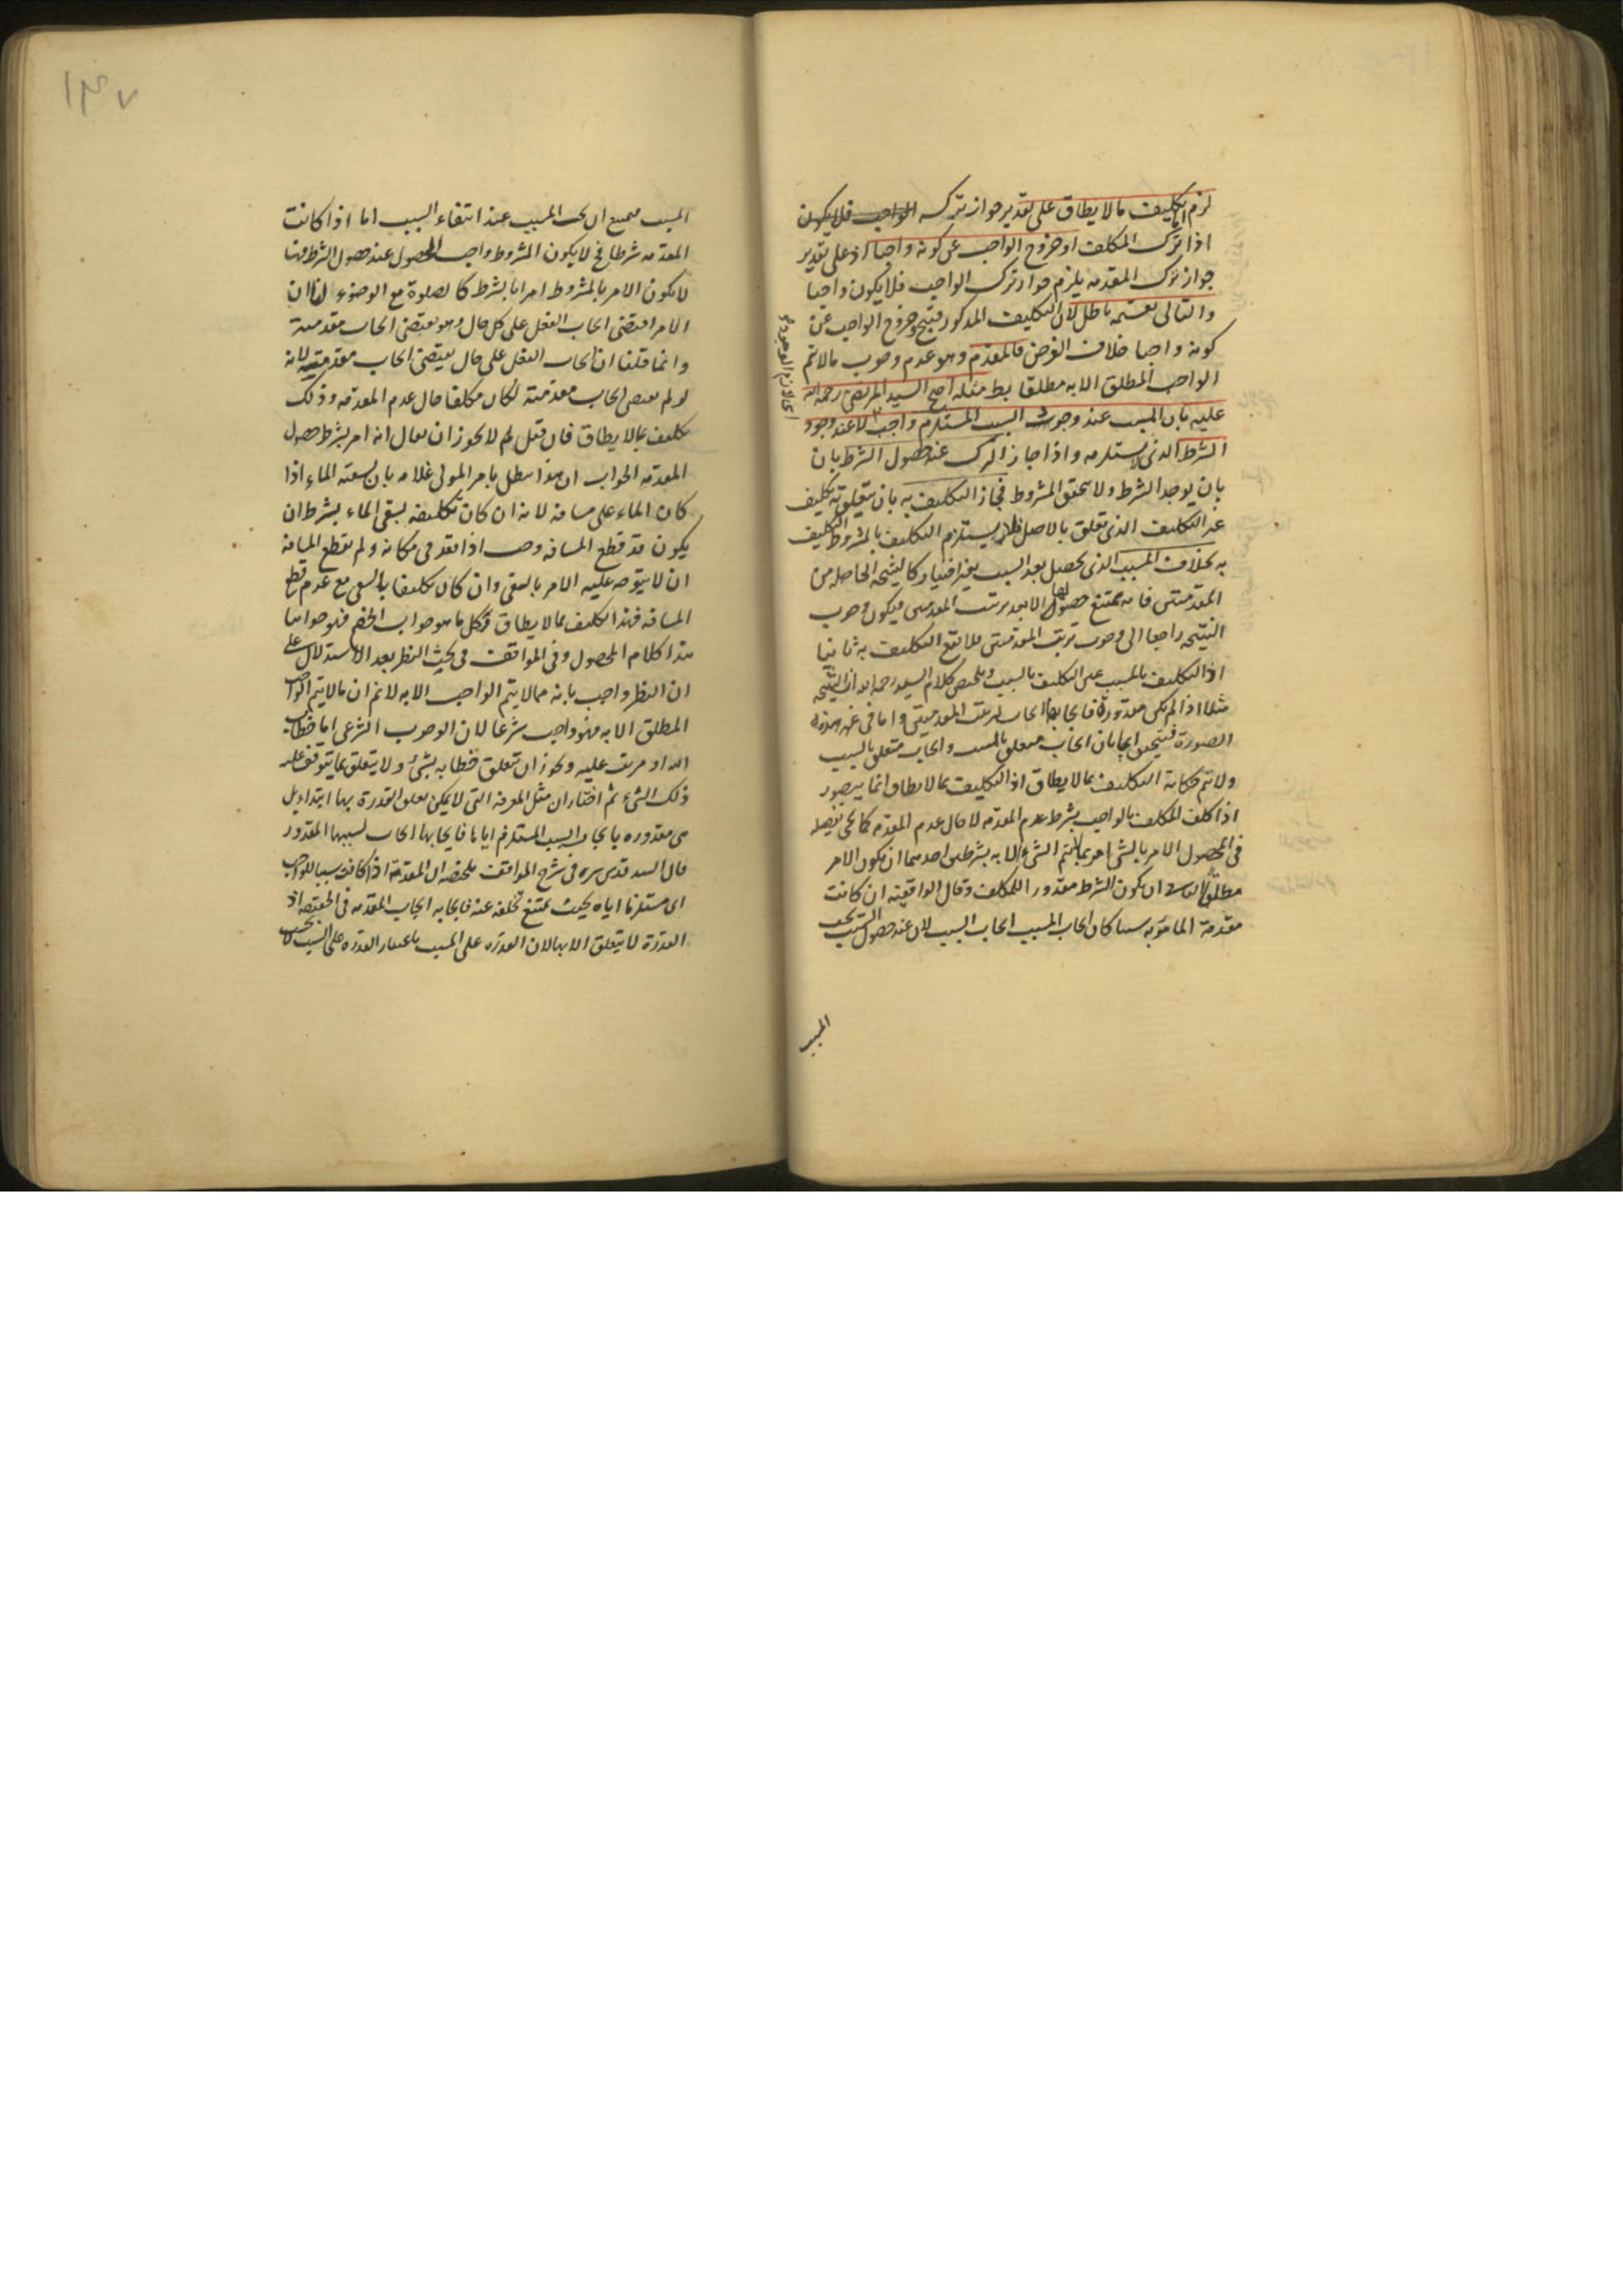 لزم التكليف ما لا يطاق على تقدير جواز تركه
اذا ترك المكلف او خروج الواجب عن كونه واجبا اذ على تقدير
جواز ترك المقدمه يلزم جواز ترك الواجب فلا يكون واجبا
والتالى بقسميه باطل لان التكليف المذكور قبيح وخروج الواجب عن
كونه واجبا خلاف الفرض فالمقدم وهو عدم وجوب ما لا يتم
الواجب المطلق الا به مطلقا مثله احتج السيد المرتضى رحمه الله
عليه بان المسبب عند وجود السبب المستلزم واجب لا عند وجود
الشرط الذى لا يستلزمه واذا جاز الترك عند حصول الشرط بان
بان يوجد الشرط ولا يتحقق المشروط فجاز التكليف به بان يتعلق به تكليف
غير التكليف الذى تعلق بالاصل فلا يستلزم التكليف بالمشروط التكليف
به بخلاف المسبب الذى يحصل بعد السبب بغير اختيار كالنتيجه الحاصله من
المقدمتين فانه يمتنع حصولها الا بعد ترتيب المقدمتين ويكون وجوب
النتيجه راجعا الى وجوب ترتيب المقدمتين فلا يقع التكليف به ثانيا
اذ التكليف بالمسبب عين التكليف بالسبب وملخص كلام السيد رحمه الله ان النتيجه
مثلا اذا لم يكن مقدورة فايجابها ايجاب لترتيب المقدمتين واما فى غير هذه
الصورة فيتحقق ايجابان ايجاب متعلق بالمسبب وايجاب متعلق بالسبب
ولا تتم حكاية التكليف بما لا يطاق اذ التكليف بما لا يطاق انما يتصور
اذا كلف المكلف بالواجب بشرط عدم المقدمه لا حال عدم المقدمه كما يجئ تفصيله
فى المحصول الامر بالشئ امر بما لا يتم الشئ الا به بشرطين احدهما ان يكون الامر
مطلقا والثانى ان يكون الشرط مقدورا للمكلف وقال الواقفيه ان كانت
مقدمة المامور به سببا كان ايجاب المسبب ايجاب السبب لان عند حصول السبب يجب
اى لازم الوجود
المسبب
١٣٧
المسبب فيمتنع ان يجب المسبب عند انتفاء السبب اما اذا كانت
المقدمه شرطا فح لا يكون المشروط واجب الحصول عند حصول الشرط فههنا
لا يكون الامر بالمشروط امرا بالشرط كالصلوة مع الوضوء لنا ان
الامر اقتضى ايجاب الفعل على كل حال وهو يقتضى ايجاب مقدمته
وانما قلنا ان ايجاب الفعل على حال يقتضى ايجاب مقدمته لانه
لو لم يقتض ايجاب مقدمته لكان مكلفا حال عدم المقدمه وذلك
تكليف بما لا يطاق فان قيل لم لا يجوز ان يقال انه امر بشرط حصول
المقدمه الجواب ان هذا يبطل بامر المولى غلامه بان يسقيه الماء اذا
كان الماء على مسافه لانه ان كان تكليفه بسقى الماء بشرط ان
يكون قد قطع المسافه وجب اذا قعد فى مكانه ولم يقطع المسافه
ان لا يتوجه عليه الامر بالسقى وان كان مكلفا بالسقى مع عدم قطع
المسافه فهذا تكليف بما لا يطاق فكل ما هو جواب الخصم فهو جوابنا
هذا كلام المحصول وفى المواقف فى بحث النظر بعد الاستدلال على
ان النظر واجب بانه مما لا يتم الواجب الا به لانم ان ما لا يتم الواجب
المطلق الا به فهو واجب شرعا لان الوجوب الشرعى اما خطاب
الله او مرتب عليه ويجوز ان تعلق خطابه بشئ ولا يتعلق بما يتوقف عليه
ذلك الشئ ثم اختار ان مثل المعرفه التى لا يمكن تعلق القدرة بها ابتداء بل
هى مقدوره بايجاد السبب المستلزم اياها فايجابها ايجاب لسببها المقدور
قال السيد قدس سره فى شرح المواقف ملخصه ان المقدمة اذا كانت سببا للواجب
اى مستلزما اياه بحيث يمتنع تخلفه عنه فايجابه ايجاب المقدمه فى الحقيقه اذ
القدرة لا يتعلق الا بها لان القدره على المسبب باعتبار القدره على السبب